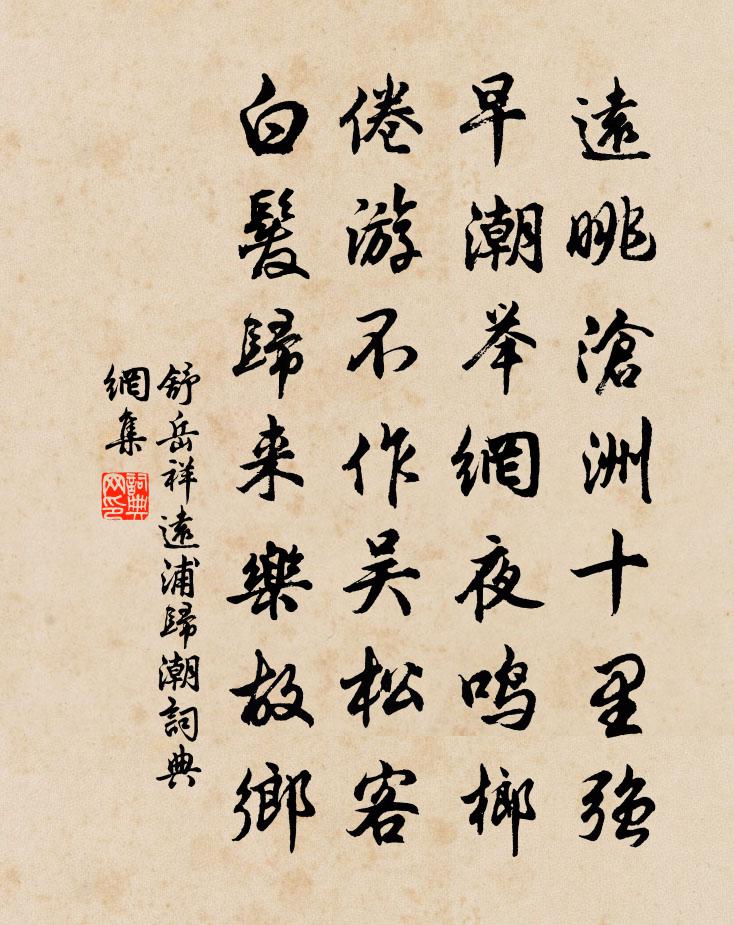 遠眺滄洲十里強
早潮举網夜鸣榔
倦游不作吴松客
白髮歸来樂故鄉
舒岳祥遠浦歸潮詞典
網集
詞典
网印